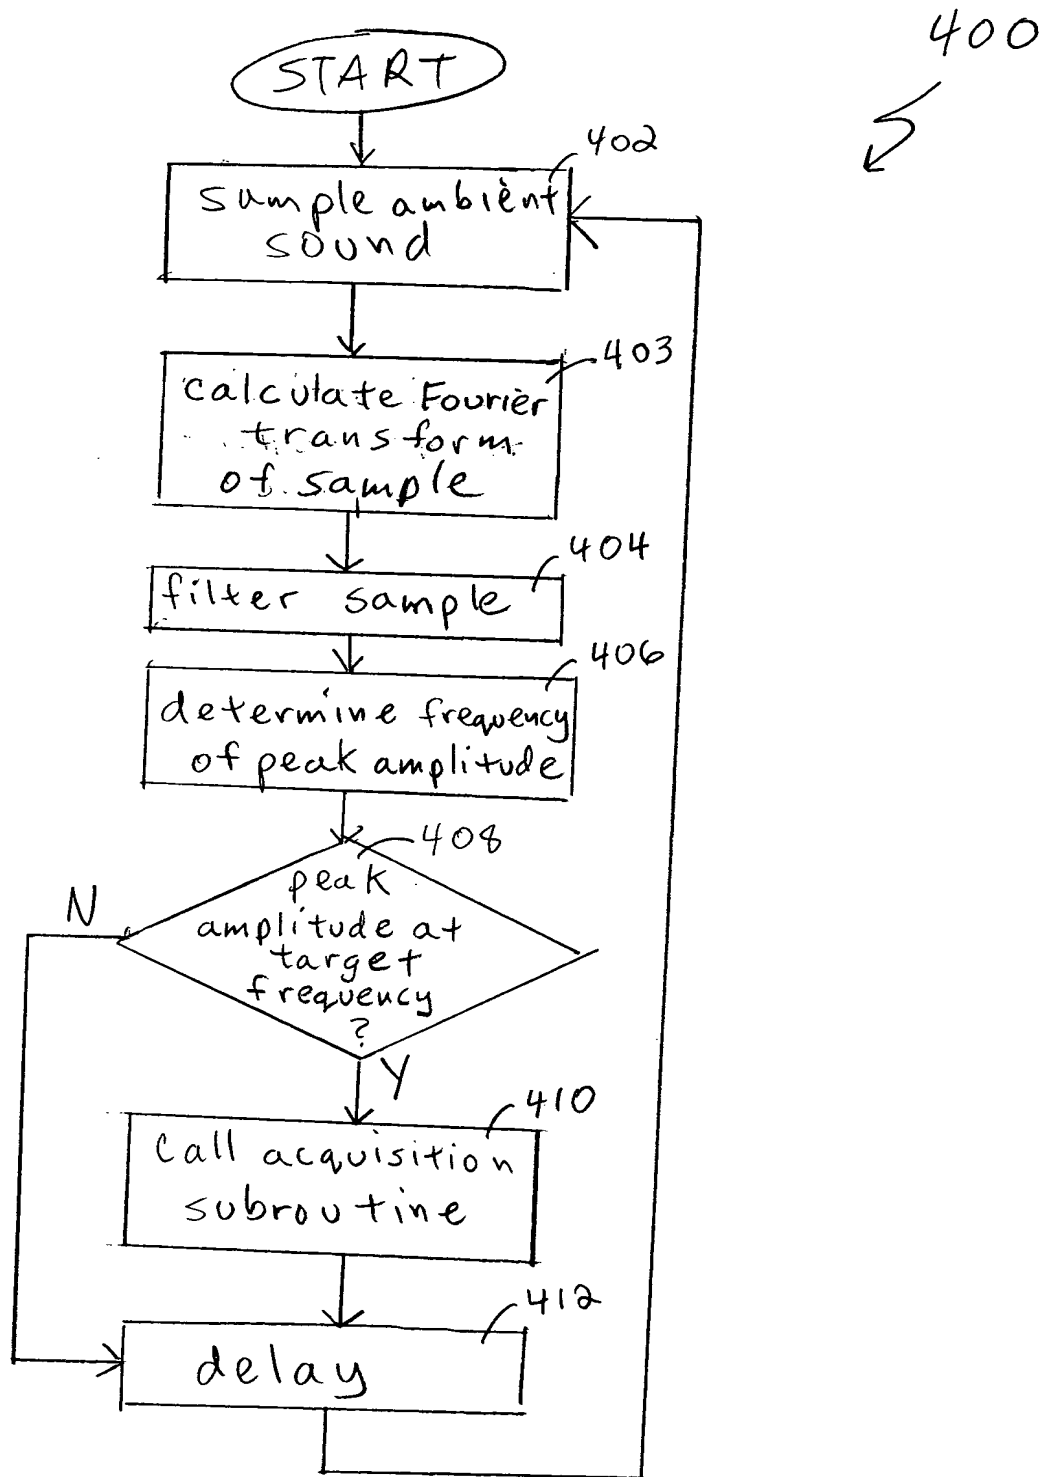 400
START
402
sample ambient
sound
403
calculate Fourier
transform
of sample
404
filter sample
406
determine frequency
of peak amplitude
408
peak
amplitude at
target
frequency
?
N
Y
410
Call acquisition
subroutine
412
delay